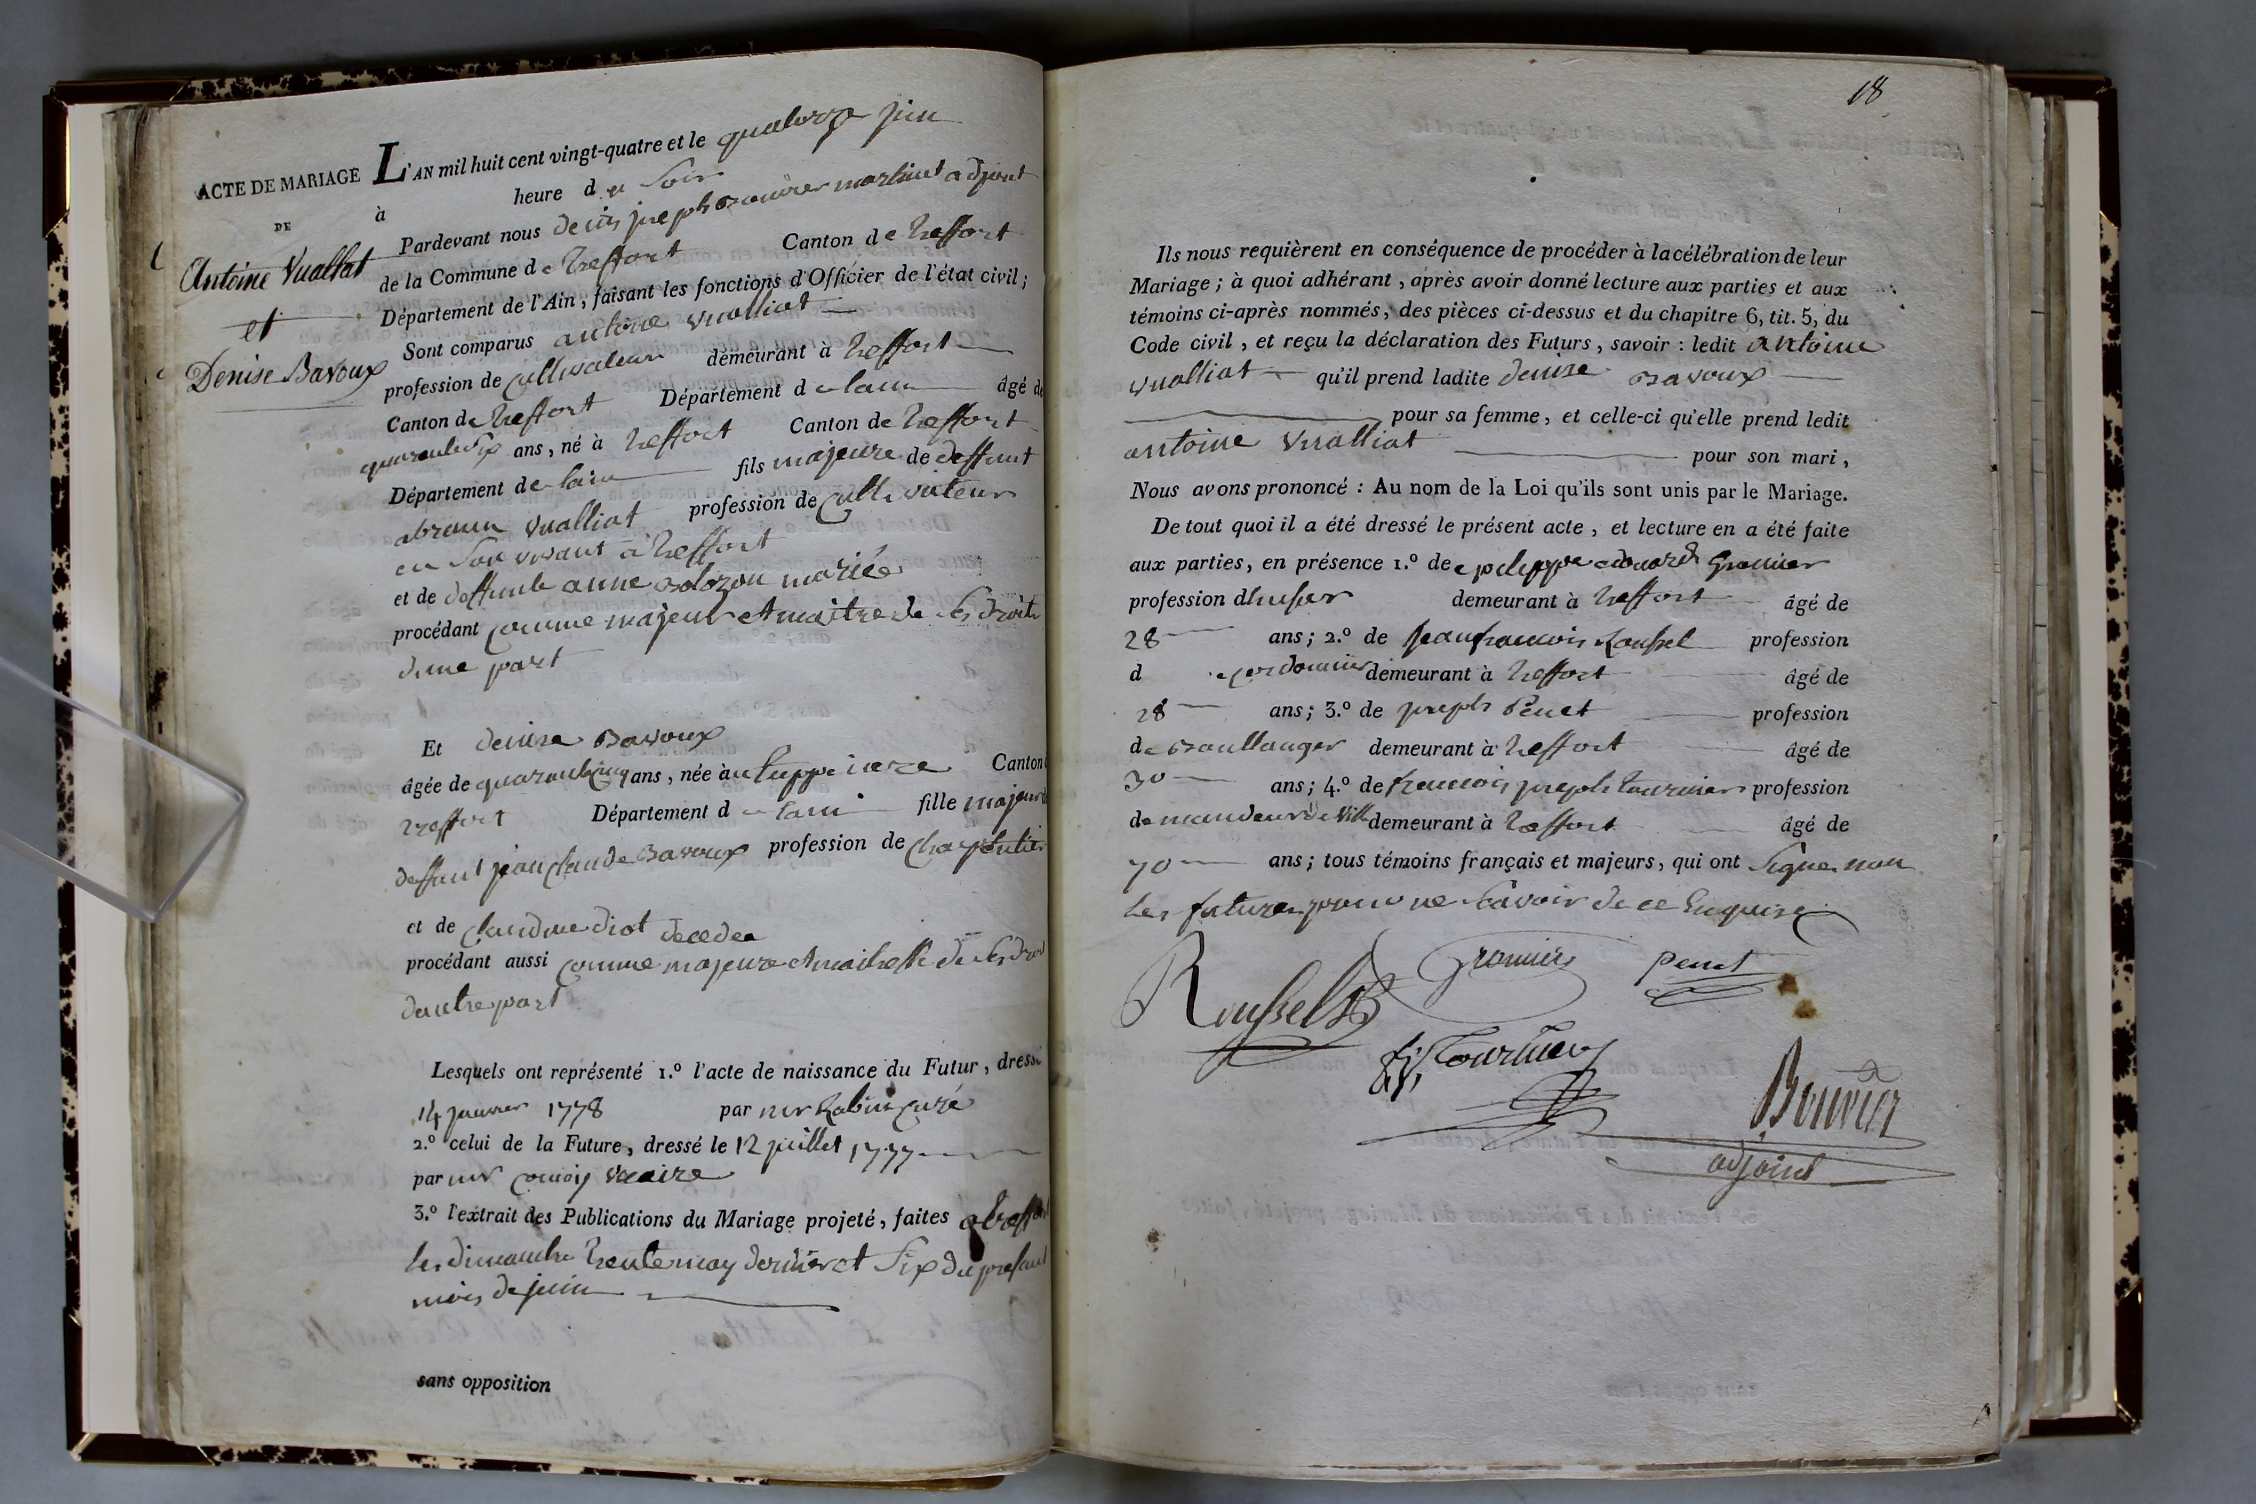 ACTE DE MARIAGE
DE
Antoine Vuallat
et
Denise Bavoux
L'AN mil huit cent vingt-quatre et le quatorze juin
à heure du Soir
Pardevant nous denis joseph Bouvier adjoint
de la Commune de treffort Canton de treffort
Département de l'Ain, faisant les fonctions d'Officier de l'état civil;
Sont comparus antoine vualliat
profession de Cultivateur demeurant à treffort
Canton de treffort Département de lain âgé de
quarantesix ans, né à treffort Canton de treffort
Département de lain fils majeure de deffunt
abram vualliat profession de Cultivateur
en Son vivant à treffort
et de deffunte anne mariée
procédant Comme majeur et maitre de Ses droits
dune part
Et denise Bavoux
âgée de quarantecinq ans, née à Canton
treffort Département de lain fille majeur
deffunt jean claude Bavoux profession de Charpentier
et de claudine diot decedee
procédant aussi Comme majeure et maitresse de Ses droi
dautre part
Lesquels ont représenté 1.º l'acte de naissance du Futur, dressé
14 janvier 1778 par mr Rabin Curé
2.º celui de la Future, dressé le 12 juillet 1777
par mr vicaire
3.º l'extrait des Publications du Mariage projeté, faites a treffort
les dimanche trente may dernier et Six du presant
mois de juin
sans opposition
18
Ils nous requièrent en conséquence de procéder à la célébration de leur
Mariage; à quoi adhérant, après avoir donné lecture aux parties et aux
témoins ci-après nommés, des pièces ci-dessus et du chapitre 6, tit. 5, du
Code civil, et reçu la déclaration des Futurs, savoir : ledit antoine
vualliat qu'il prend ladite denise Bavoux
pour sa femme, et celle-ci qu'elle prend ledit
antoine vualliat pour son mari,
Nous avons prononcé : Au nom de la Loi qu'ils sont unis par le Mariage.
De tout quoi il a été dressé le présent acte, et lecture en a été faite
aux parties, en présence 1.º de edouard Gromier
profession dhuisier demeurant à treffort âgé de
28 ans; 2.º de jean francois Roussel profession
de cordonnier demeurant à treffort âgé de
28 ans; 3.º de joseph Penet profession
de Boullanger demeurant à treffort âgé de
30 ans; 4.º de francois joseph tournier profession
de mandeur de ville demeurant à treffort âgé de
70 ans; tous témoins français et majeurs, qui ont Signe non
les futures pour ne Scavoir de ce Enquise
Roussel Gromier Penet
fj Tournier
Bouvier
adjoint